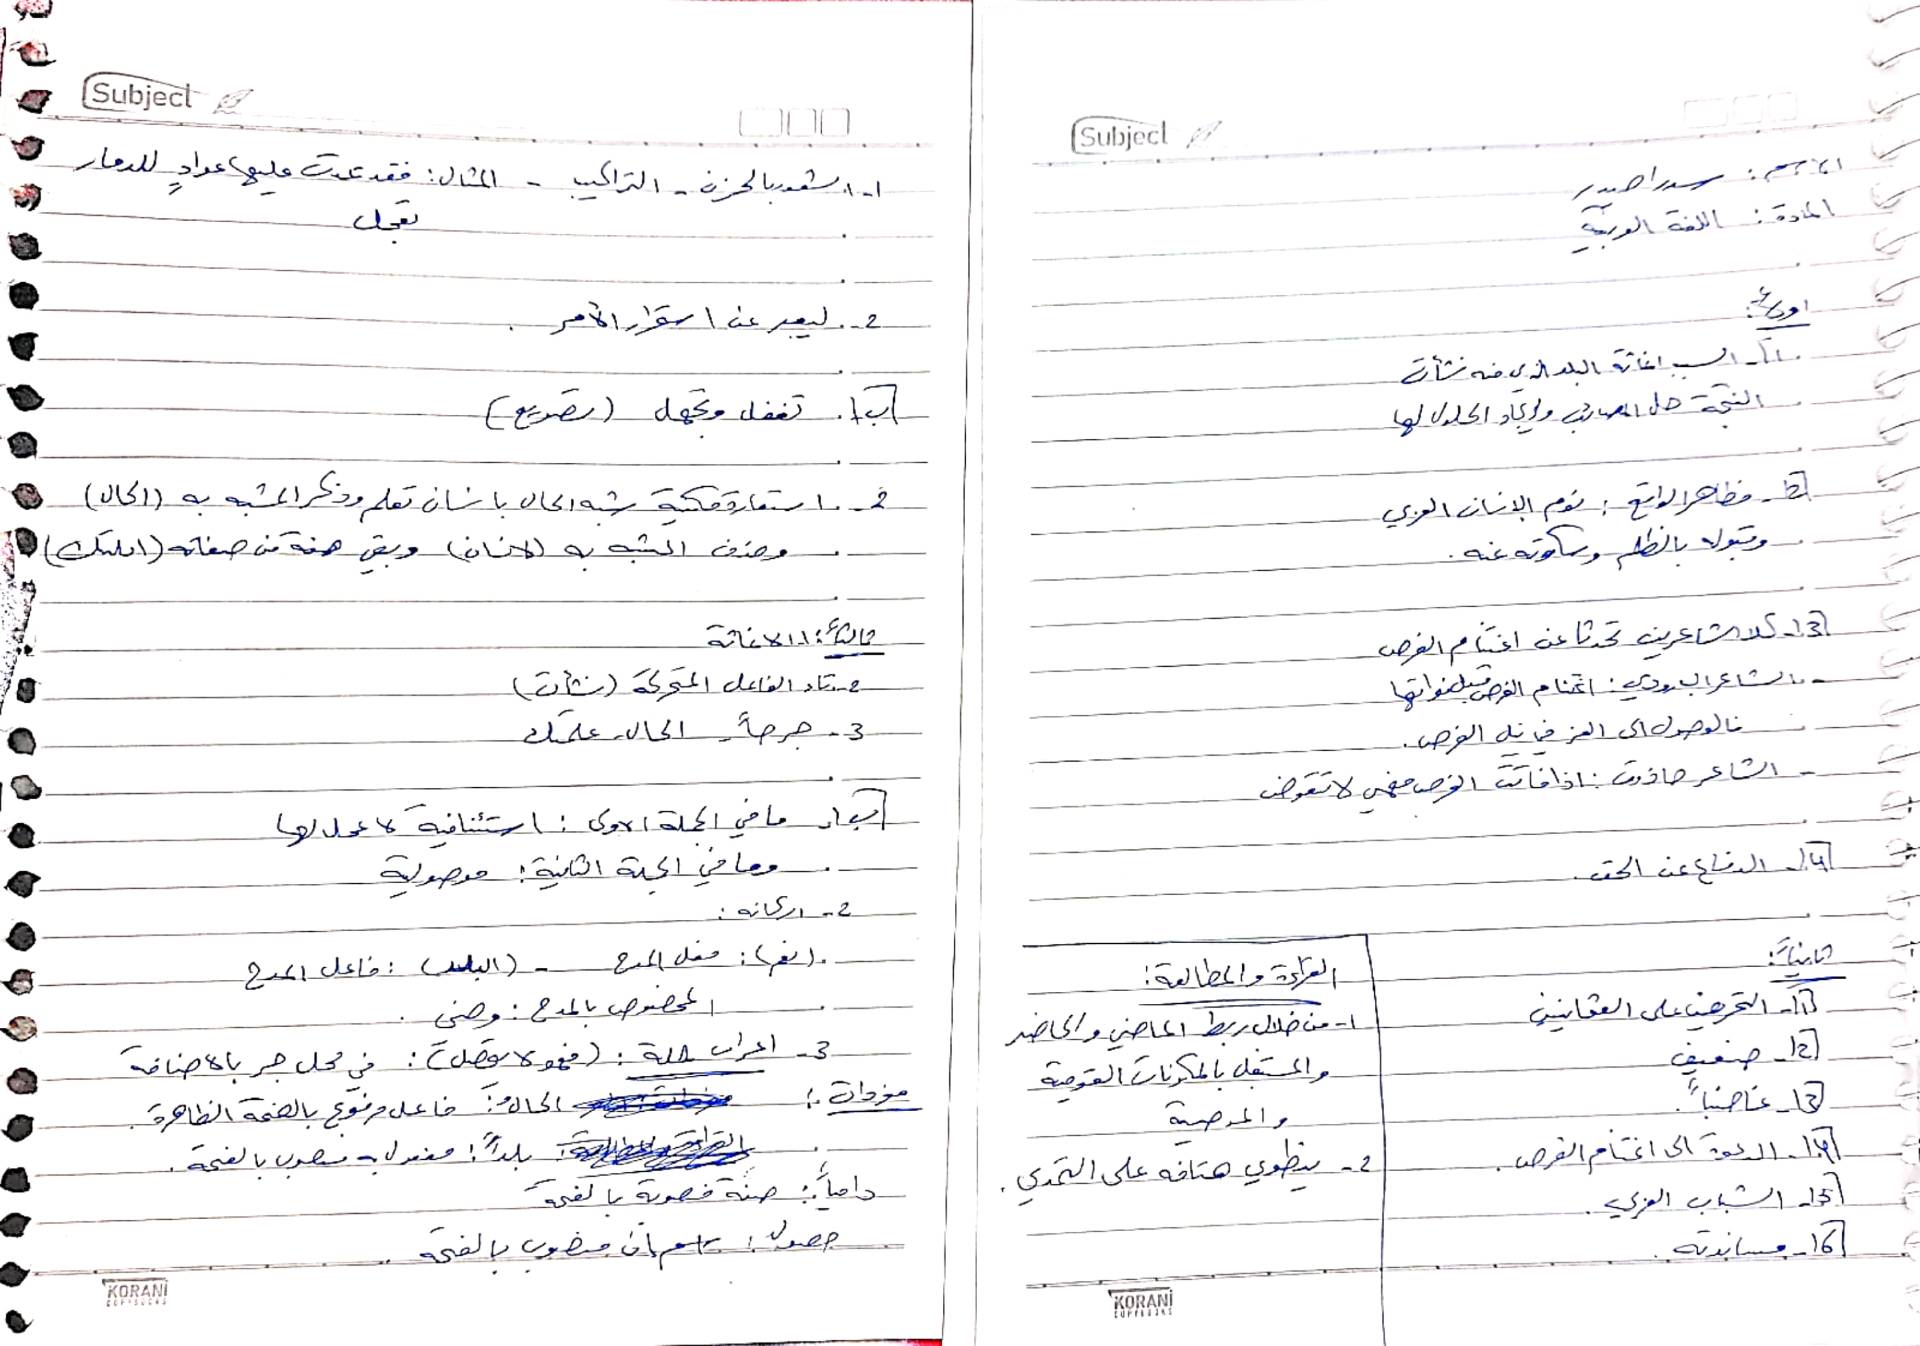 Subject
الاسم: سدرا صيدر
المادة: اللغة العربية
أولاً:
1- السبب اغاثة البلد الذي منه نشأت
النتيجة حل المصائب وايجاد الحلول لها
2- مظاهر الواقع: نوم الإنسان العربي
وقبوله بالظلم وسكوته عنه.
3- كلا الشاعرين تحدثا عن اغتنام الفرص
- الشاعر البارودي: اغتنام الفرص قبل فواتها
فالوصول الى العز في نيل الفرص.
- الشاعر اذا فاتت الفرص فهي لا تعوض
4- الدفاع عن الحق.
ثانياً:
1- التحريض على العثمانيين
2- ضعيف
3- غاضباً.
4- الدعوة الى اغتنام الفرص.
5- الشباب العربي.
6- مساندته.
القراءة والمطالعة:
1- من خلال ربط الماضي والحاضر
والمستقبل بالمكونات القومية
و
2- ينطوي هتافه على التحدي.
KORANI
COPYBOOKS
Subject
1-1 شعور بالحزن - التراكيب - المثال: فقد عدت عليها عوادٍ للدمار
تعجل
2- ليعبر عن استقرار الأمر.
ب 1- تغفل وتجهل (تصريع)
2- استعارة مكنية شبه الحال بانسان تعلم وذكر المشبه به (الحال)
وحذف المشبه به (الانسان) وبقي صفة من صفاته
ثالثاً: 1- الاغاثة
2- تاء الفاعل المتحركة (نشأت)
3- الحال علمتك
ب 1- ما في الجملة الاولى: استئنافية لا محل لها
وما في الجملة الثانية: موصولية
2- اركانه:
(نعم): فعل المدح - (البلد): فاعل المدح
المخصوص بالمدح: وطني.
3- اعراب جملة: (فهو لا يفصل): في محل جر بالاضافة
مفردات: الحال: فاعل مرفوع بالضمة الظاهرة.
بلداً: مفعول به منصوب بالفتحة.
دامياً: صفة منصوبة بالفتحة
حصول: اسم إن منصوب بالفتحة.
KORANI
COPYBOOKS